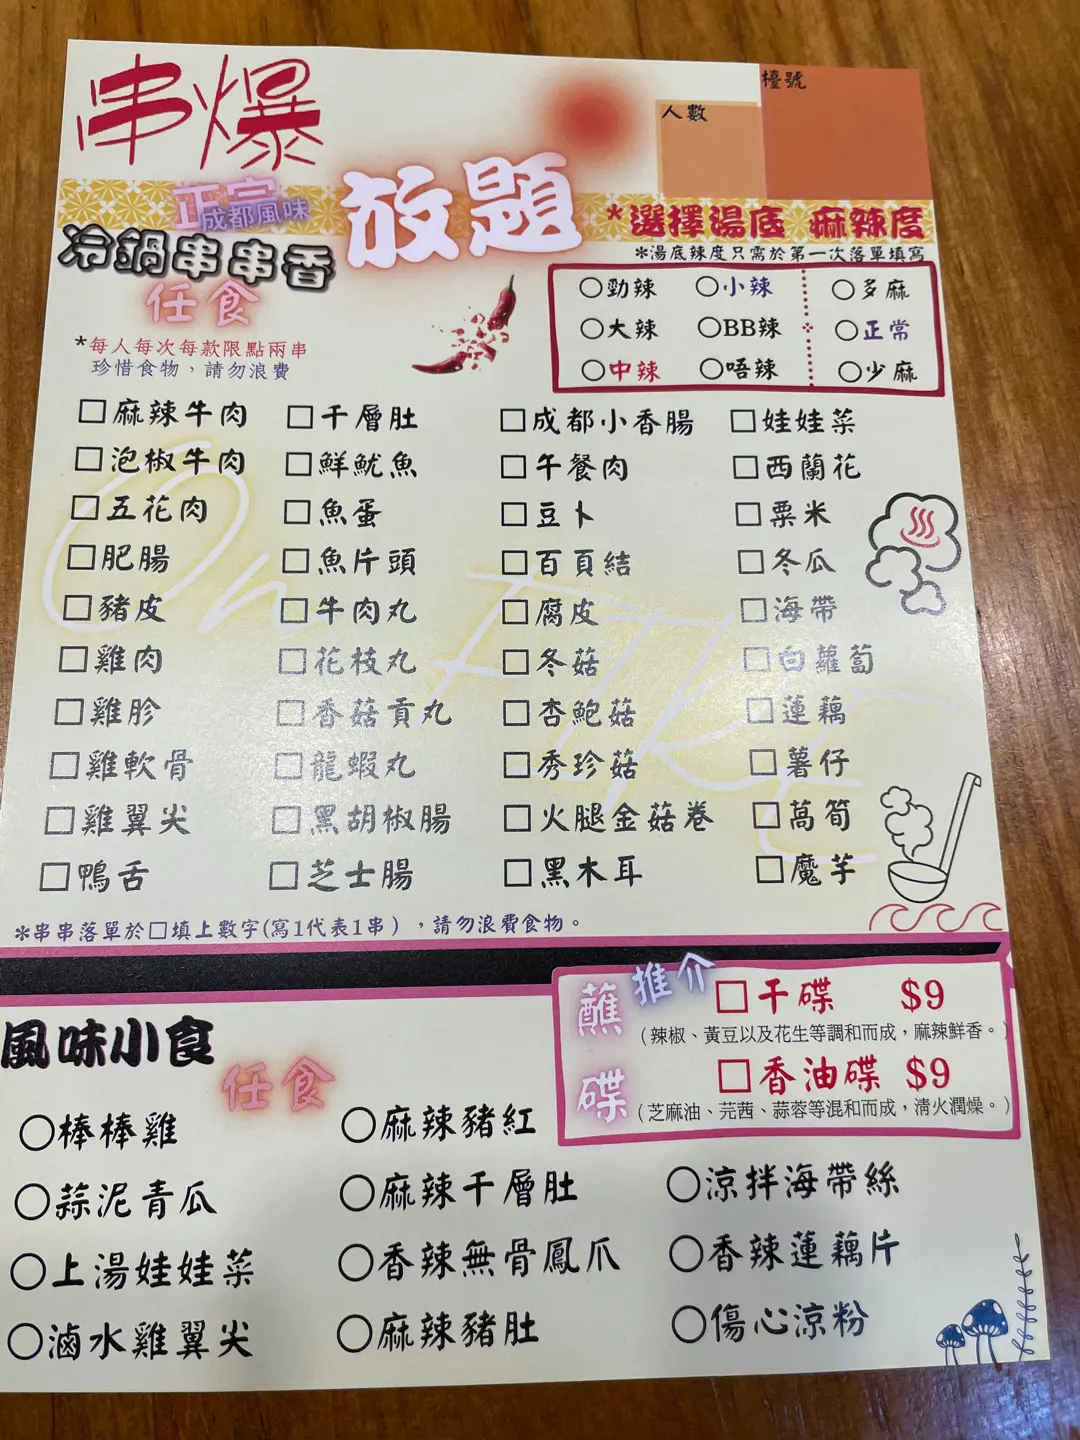 串爆
檯號
人數
正宗
成都風味
放題
冷鍋串串香
任食
*選擇湯底 麻辣度
*湯底辣度只需於第一次落單填寫
*每人每次每款限點兩串
珍惜食物，請勿浪費
○勁辣 ○小辣 ○多麻
○大辣 ○BB辣 ○正常
○中辣 ○唔辣 ○少麻
□麻辣牛肉 □千層肚 □成都小香腸 □娃娃菜
□泡椒牛肉 □鮮魷魚 □午餐肉 □西蘭花
□五花肉 □魚蛋 □豆卜 □粟米
□肥腸 □魚片頭 □百頁結 □冬瓜
□豬皮 □牛肉丸 □腐皮 □海帶
□雞肉 □花枝丸 □冬菇 □白蘿蔔
□雞胗 □香菇貢丸 □杏鮑菇 □蓮藕
□雞軟骨 □龍蝦丸 □秀珍菇 □薯仔
□雞翼尖 □黑胡椒腸 □火腿金菇卷 □萵筍
□鴨舌 □芝士腸 □黑木耳 □魔芋
On FIRE
*串串落單於□填上數字(寫1代表1串），請勿浪費食物。
蘸碟
推介
□干碟 $9
（辣椒、黃豆以及花生等調和而成，麻辣鮮香。）
□香油碟 $9
（芝麻油、芫茜、蒜蓉等混和而成，清火潤燥。）
風味小食
任食
○棒棒雞 ○麻辣豬紅
○蒜泥青瓜 ○麻辣千層肚 ○涼拌海帶絲
○上湯娃娃菜 ○香辣無骨鳳爪 ○香辣蓮藕片
○滷水雞翼尖 ○麻辣豬肚 ○傷心涼粉